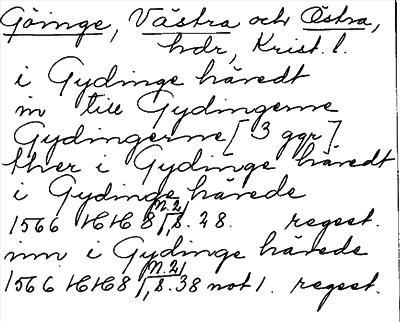 Göinge, Västra och Östra,
hdr, Krist. l.
i Gydinge häredt
in till Gydingerne
Gydingerne [3 ggr]
ther i Gydinge häredt
i Gydinge härede
1566 HH 8 N.2 1, s. 28. regest.
inn i Gydinge härede
1566 HH 8 N.2 1, s. 38 not 1. regest.